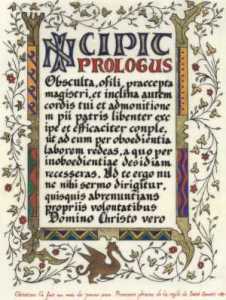 INCIPIT
PROLOGUS
Obsculta, o fili, praecepta
magistri, et inclina aurem
cordis tui et admonitione
m pii patris libenter exc
ipe et efficaciter conple,
ut ad eum per oboedientia
laborem redeas, a quo per
inoboedientiae desidiam
recesseras. Ad te ergo nu
nc mihi sermo dirigitur,
quisquis abrenuntians
propriis voluntatibus
Domino Christo vero
l'a fait au mois de phrases de la règle de Saint Benoit